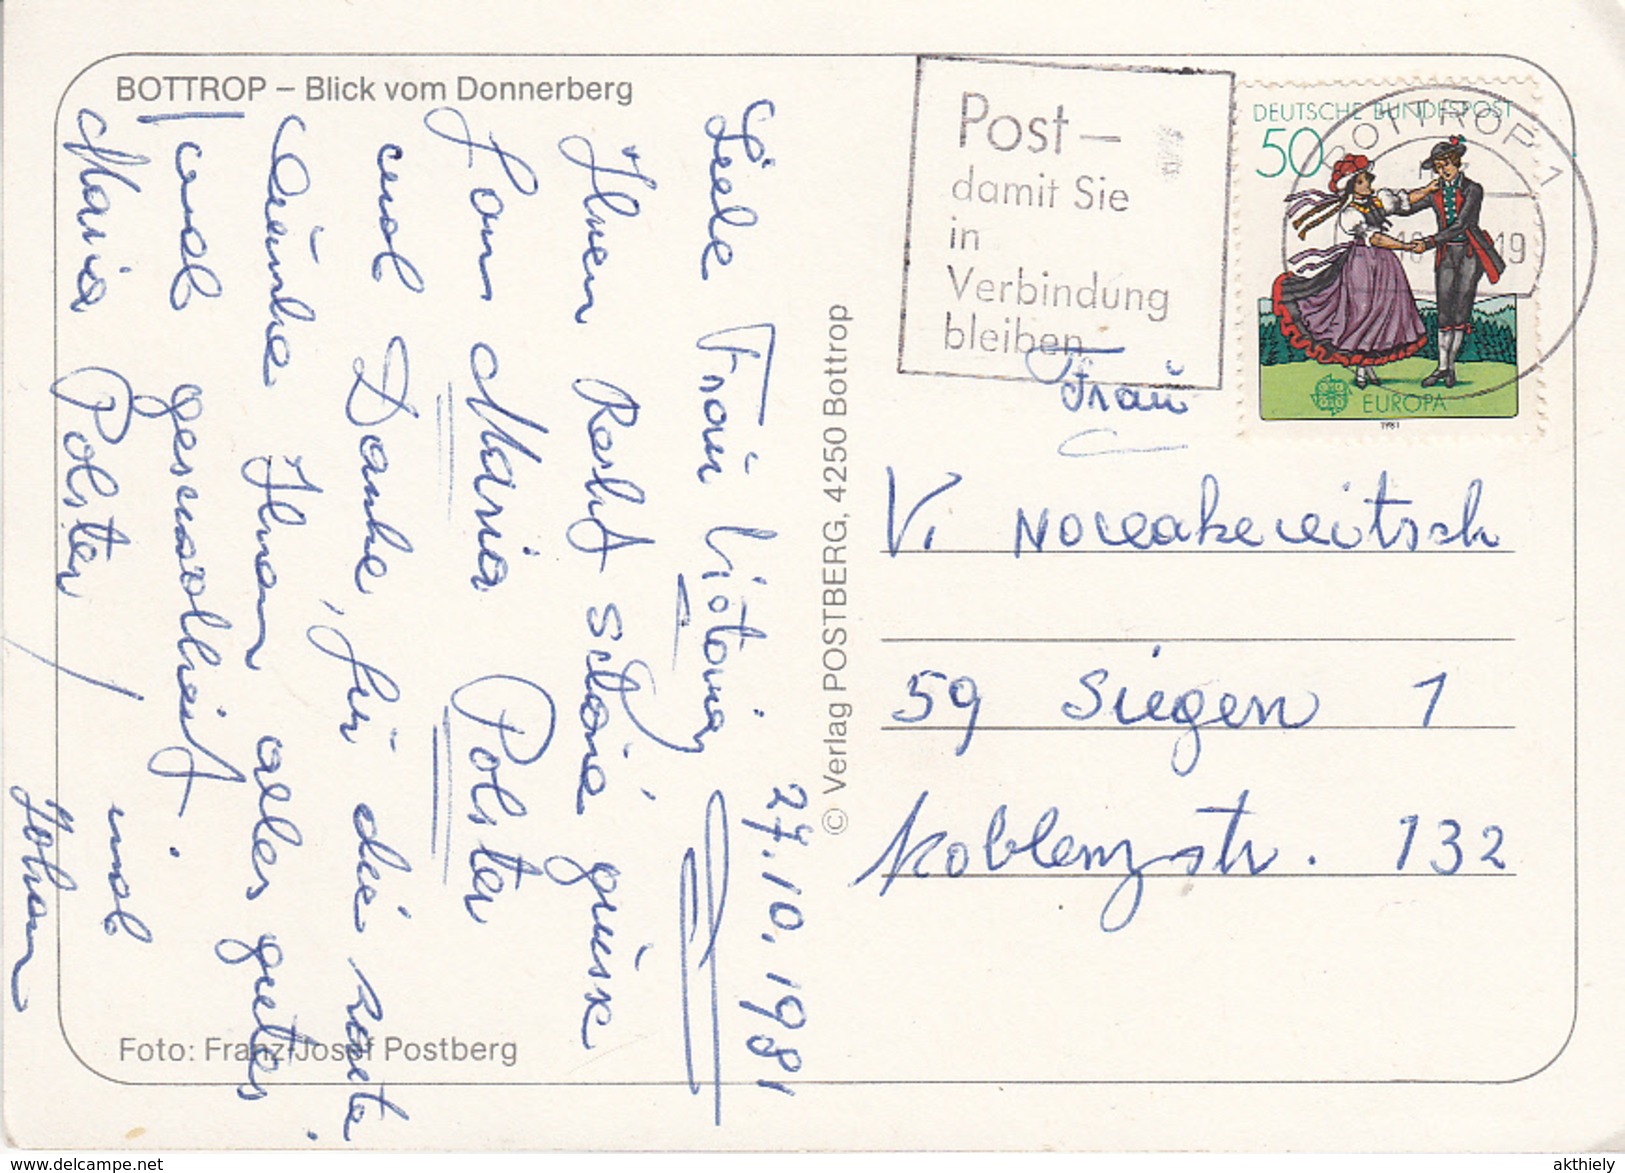 BOTTROP – Blick vom Donnerberg
27.10.1981
Liebe Frau
Ihnen Recht schöne grüsse
Maria Polster
und Danke, für die Karte.
Wünche Ihnen alles gutes
und gesundheit.
Maria Polster / und
Johan
Foto: Franz-Josef Postberg
© Verlag POSTBERG, 4250 Bottrop
Post –
damit Sie
in
Verbindung
bleiben
DEUTSCHE BUNDESPOST
50
EUROPA
1981
BOTTROP 1
19
Frau
V. Noveakereitsch
59 Siegen 1
Koblenzstr. 132
www.delcampe.net
akthiely